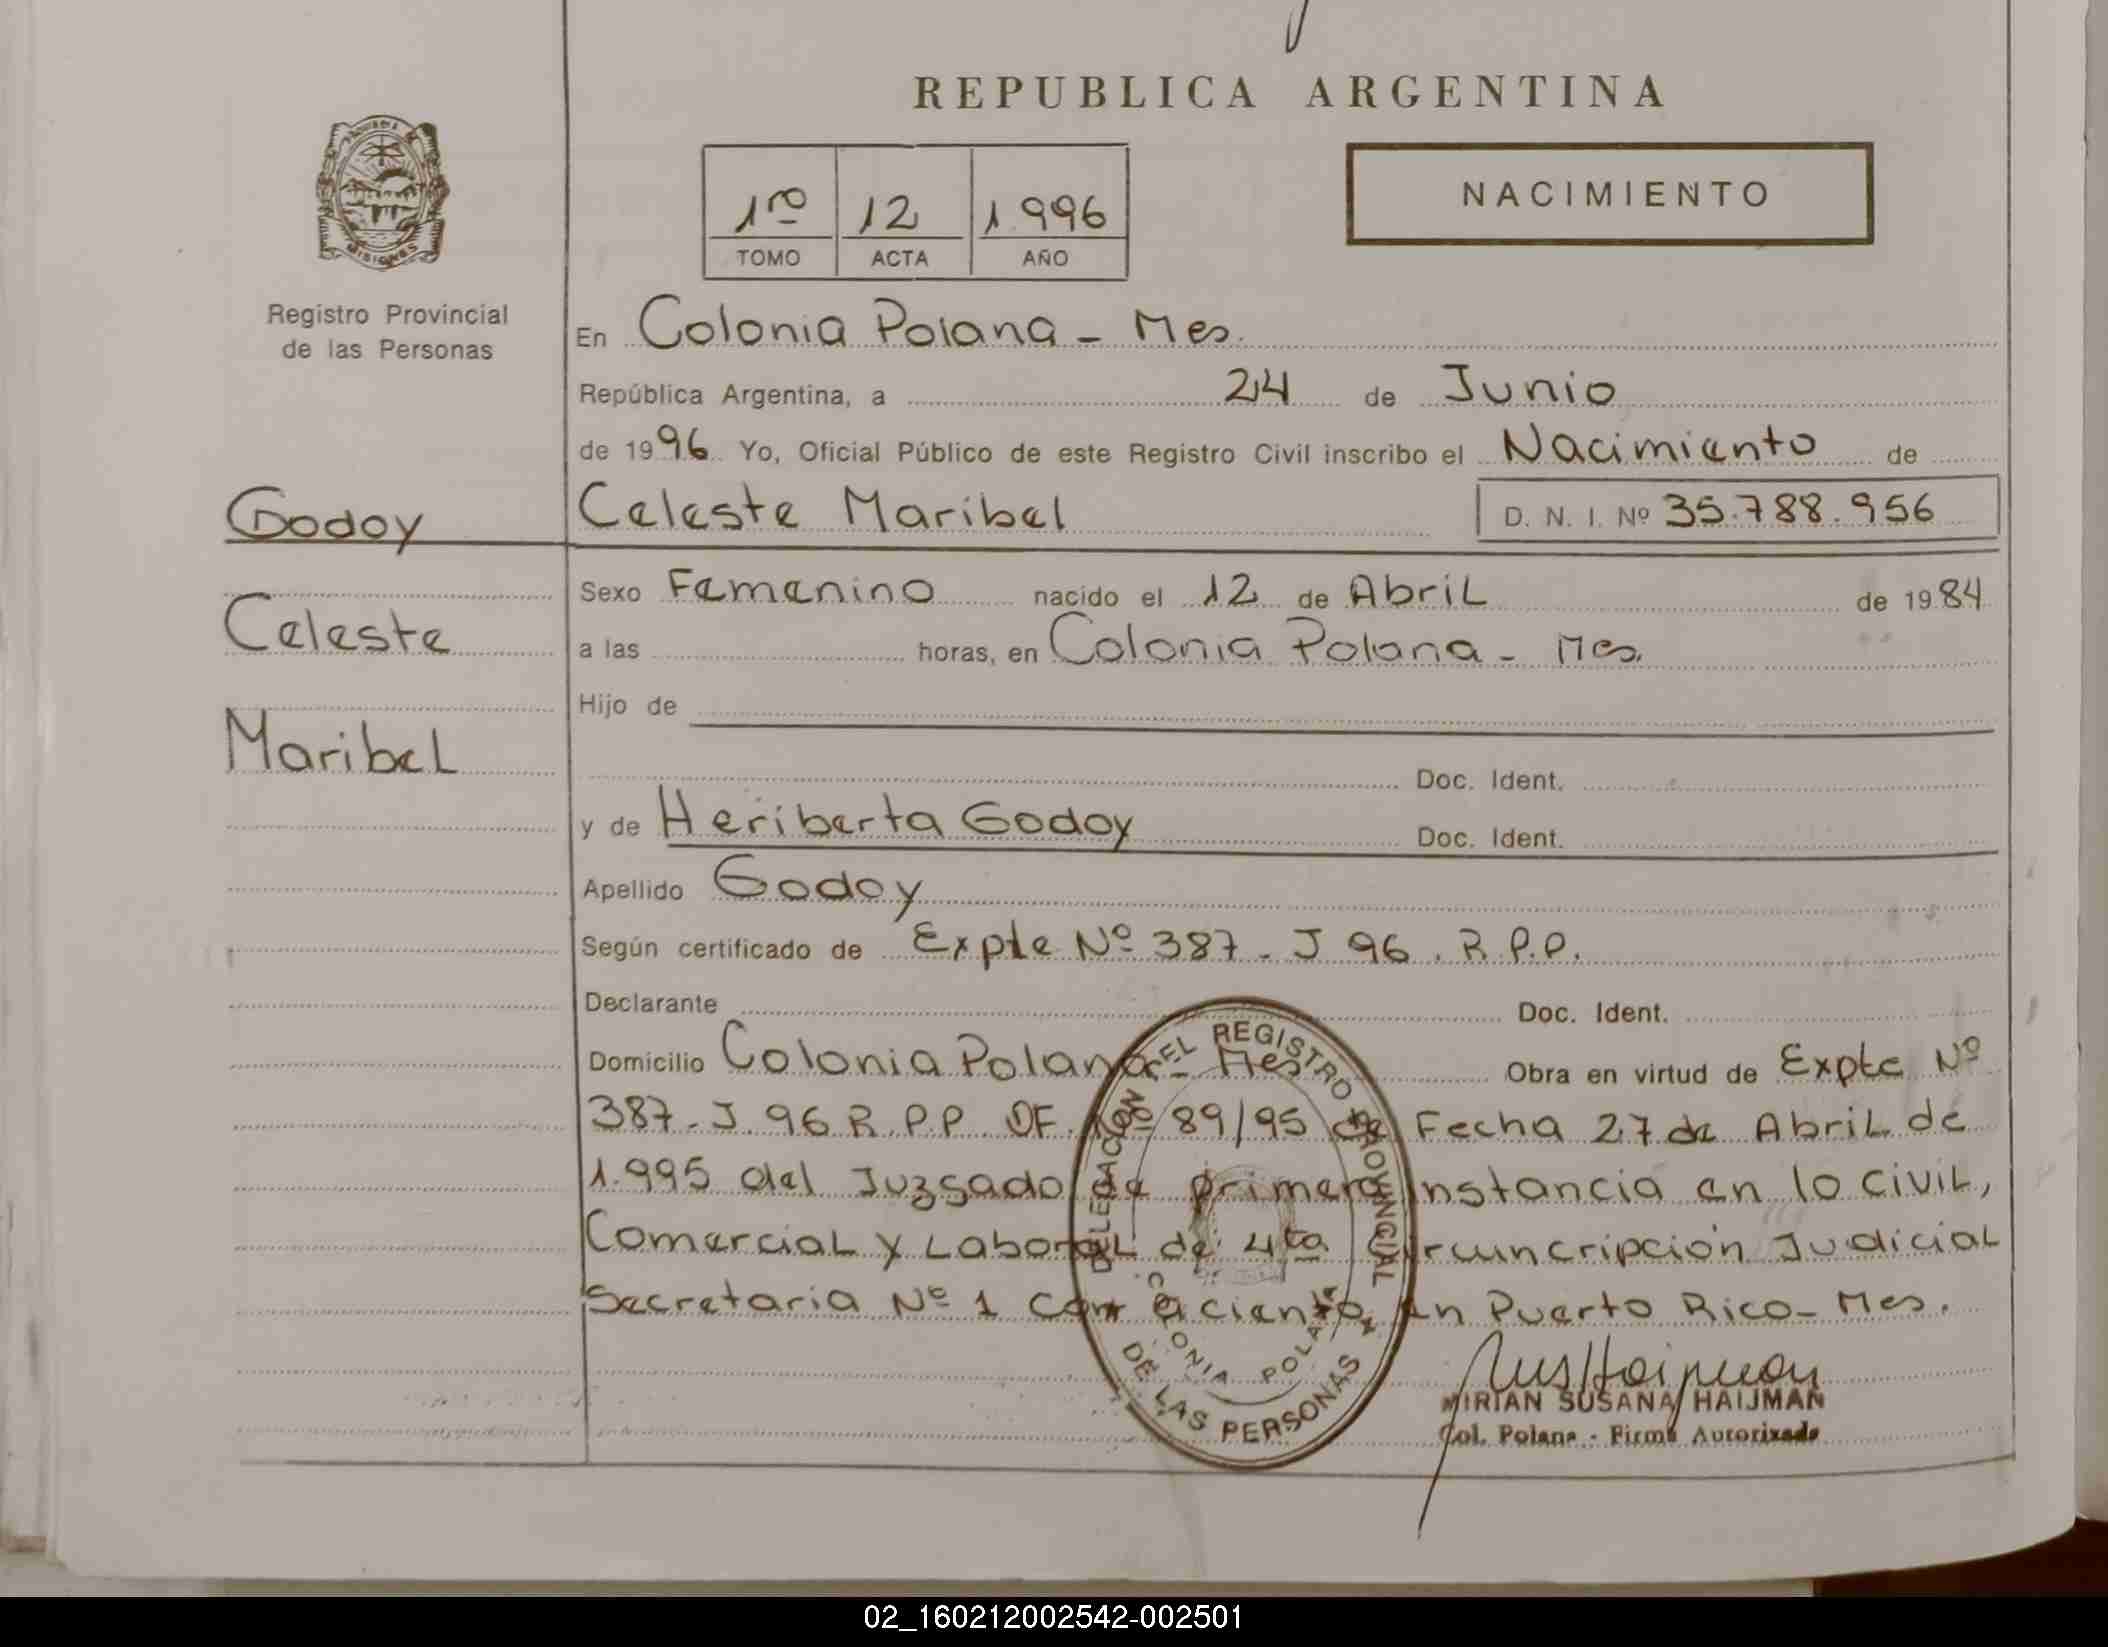 REPUBLICA ARGENTINA
PROVINCIA DE
MISIONES
Registro Provincial
de las Personas
1ro 12 1.996
TOMO ACTA AÑO
NACIMIENTO
En Colonia Polana - Mes.
República Argentina, a 24 de Junio
de 1996 Yo, Oficial Público de este Registro Civil inscribo el Nacimiento de
Celeste Maribel D. N. I. Nº 35.788.956
Godoy
Celeste
Maribel
Sexo Femenino nacido el 12 de Abril de 1984
a las horas, en Colonia Polana - Mes.
Hijo de
Doc. Ident.
y de Heriberta Godoy Doc. Ident.
Apellido Godoy
Según certificado de Expte Nº 387 - J 96. R.P.P.
Declarante Doc. Ident.
Domicilio Colonia Polana - Mes Obra en virtud de Expte Nº
387 - J. 96 R.P.P. OF. Nº 89/95 de Fecha 27 de Abril de
1.995 del Juzgado de primera Instancia en lo civil,
Comercial y Laboral de 4ta Circuncripción Judicial
Secretaria Nº 1 con aciento en Puerto Rico - Mes.
DELEGACION DEL REGISTRO PROVINCIAL
DE LAS PERSONAS
COLONIA POLANA
MIRIAN SUSANA HAIJMAN
Col. Polana - Firma Autorizada
02_160212002542-002501